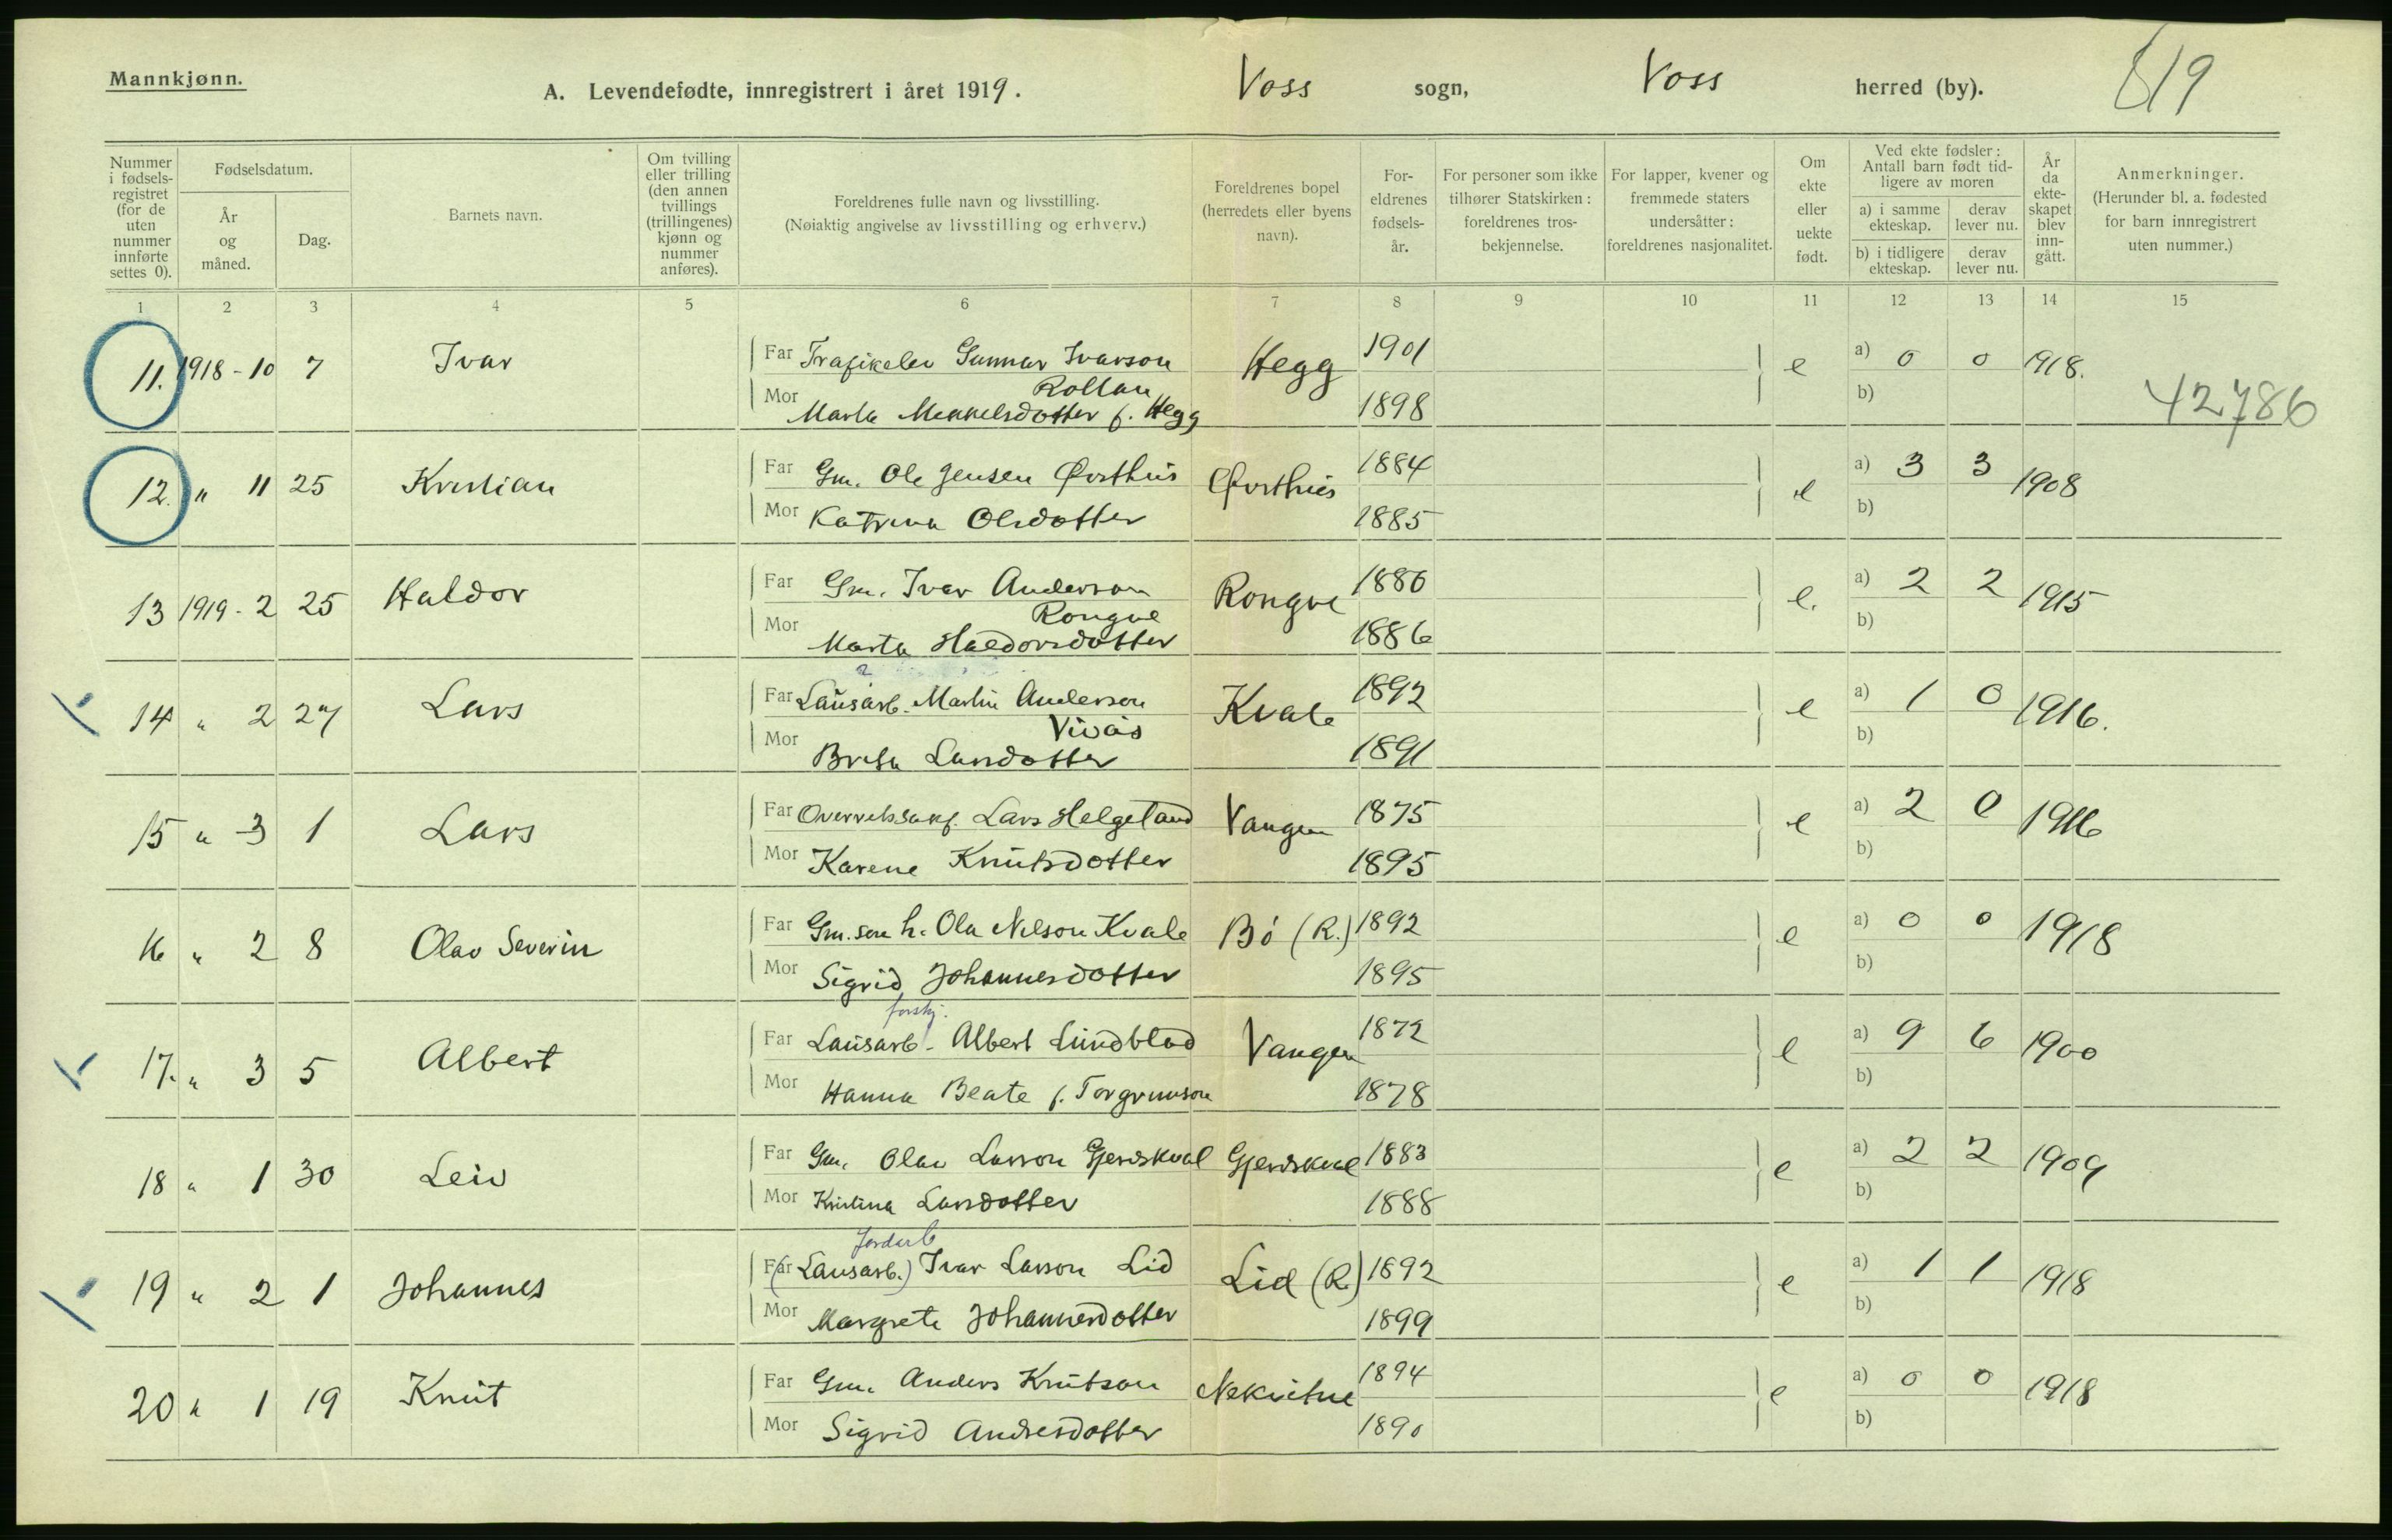 Mannkjønn.
A. Levendefødte, innregistrert i året 1919. Voss sogn, Voss herred (by). 819
Nummer i fødselsregistret (for de uten nummer innførte settes 0).
Fødselsdatum.
År og måned.
Dag.
Barnets navn.
Om tvilling eller trilling (den annen tvillings (trillingenes) kjønn og nummer anføres).
Foreldrenes fulle navn og livsstilling.
(Nøiaktig angivelse av livsstilling og erhverv.)
Foreldrenes bopel (herredets eller byens navn).
Foreldrenes fødselsår.
For personer som ikke tilhører Statskirken: foreldrenes trosbekjennelse.
For lapper, kvener og fremmede staters undersåtter: foreldrenes nasjonalitet.
Om ekte eller uekte født.
Ved ekte fødsler: Antall barn født tidligere av moren
a) i samme ekteskap. derav lever nu.
b) i tidligere ekteskap. derav lever nu.
År da ekteskapet blev inngått.
Anmerkninger.
(Herunder bl. a. fødested for barn innregistrert uten nummer.)
1 2 3 4 5 6 7 8 9 10 11 12 13 14 15
11. 1918-10 7 Ivar Far Trafikelev Gunnar Ivarson Hegg 1901 e a) 0 0 1918.
Rollan
Mor Marta Mikkelsdotter f. Hegg 1898 b) 42786
12. " 11 25 Kristian Far Gm. Ole Jensen Øvsthus Øvsthus 1884 e a) 3 3 1908
Mor Katrina Olsdotter 1885 b)
13 1919-2 25 Haldor Far Gm. Ivar Anderson Rongve 1880 e. a) 2 2 1915
Rongve
Mor Marta Haldorsdotter 1886 b)
14 " 2 27 Lars Far Lausarb. Martin Anderson Kvale 1892 e a) 1 0 1916.
Vivås
Mor Brita Larsdotter 1891 b)
15 " 3 1 Lars Far Lars Helgeland Vangen 1875 e a) 2 0 1916
Mor Karene Knutsdotter 1895 b)
16 " 2 8 Olav Severin Far Gm. son h. Ola Nilson Kvale Bö (R.) 1892 e a) 0 0 1918
Mor Sigrid Johannesdotter 1895 b)
forskj.
17. " 3 5 Albert Far Lausarb. Albert Lindblad Vangen 1872 e a) 9 6 1900
Mor Hanna Beate f. Torgrimson 1878 b)
18 " 1 30 Leiv Far Gm. Olav Larson Gjerdskval Gjerdskval 1883 e a) 2 2 1909
Mor Kristina Larsdotter 1888 b)
Jordarb
19 " 2 1 Johannes Far (Lausarb.) Ivar Larson Lid Lid (R.) 1892 e a) 1 1 1918
Mor Margreta Johannesdotter 1899 b)
20 " 1 19 Knut Far Gm. Anders Knutson Nekvitne 1894 e a) 0 0 1918
Mor Sigrid Andersdotter 1890 b)